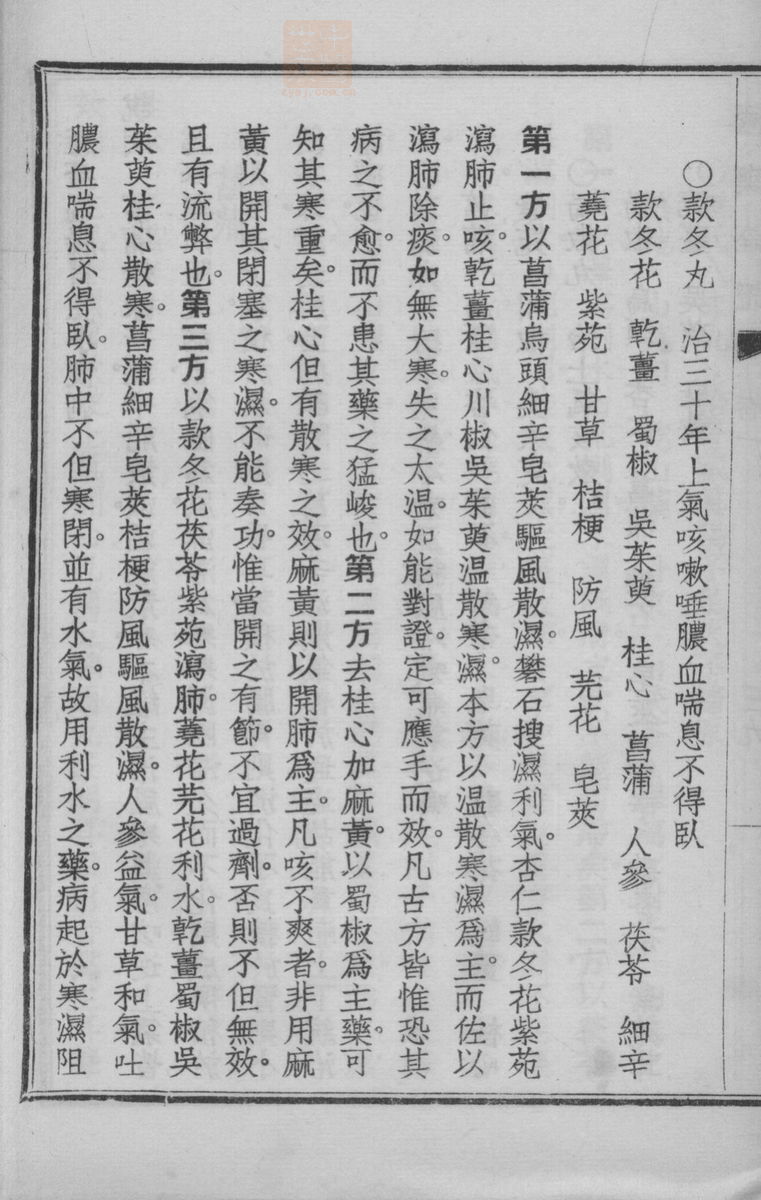 ○款冬丸　治三十年上氣咳嗽唾膿血喘息不得臥
款冬花　乾薑　蜀椒　吳茱萸　桂心　菖蒲　人參　茯苓　細辛
蕘花　紫苑　甘草　桔梗　防風　芫花　皂莢
第一方以菖蒲烏頭細辛皂莢驅風散濕。礬石搜濕利氣。杏仁款冬花紫苑
瀉肺止咳。乾薑桂心川椒吳茱萸溫散寒濕。本方以溫散寒濕爲主。而佐以
瀉肺除痰。如無大寒。失之太溫。如能對證。定可應手而效。凡古方皆惟恐其
病之不愈。而不患其藥之猛峻也。第二方去桂心加麻黃。以蜀椒爲主藥。可
知其寒重矣。桂心但有散寒之效。麻黃則以開肺爲主。凡咳不爽者。非用麻
黃以開其閉塞之寒濕。不能奏功。惟當開之有節。不宜過劑。否則不但無效。
且有流弊也。第三方以款冬花茯苓紫苑瀉肺。蕘花芫花利水。乾薑蜀椒吳
茱萸桂心散寒。菖蒲細辛皂莢桔梗防風驅風散濕。人參益氣。甘草和氣。吐
膿血喘息不得臥。肺中不但寒閉。並有水氣。故用利水之藥。病起於寒濕阻
zysj.com.cn